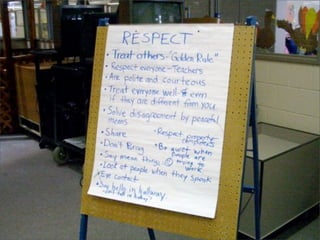 RESPECT
• Treat others - "Golden Rule"
• Respect everyone - Teachers
• Are polite and courteous
• Treat everyone well & even
if they are different from you
• Solve disagreement by peaceful
means
• Share
• Don't Bully
• Say mean things
• Look at people when they speak
Eye contact
• Say hello in hallway
• Respect property
• Be quiet when
people are
trying to
work